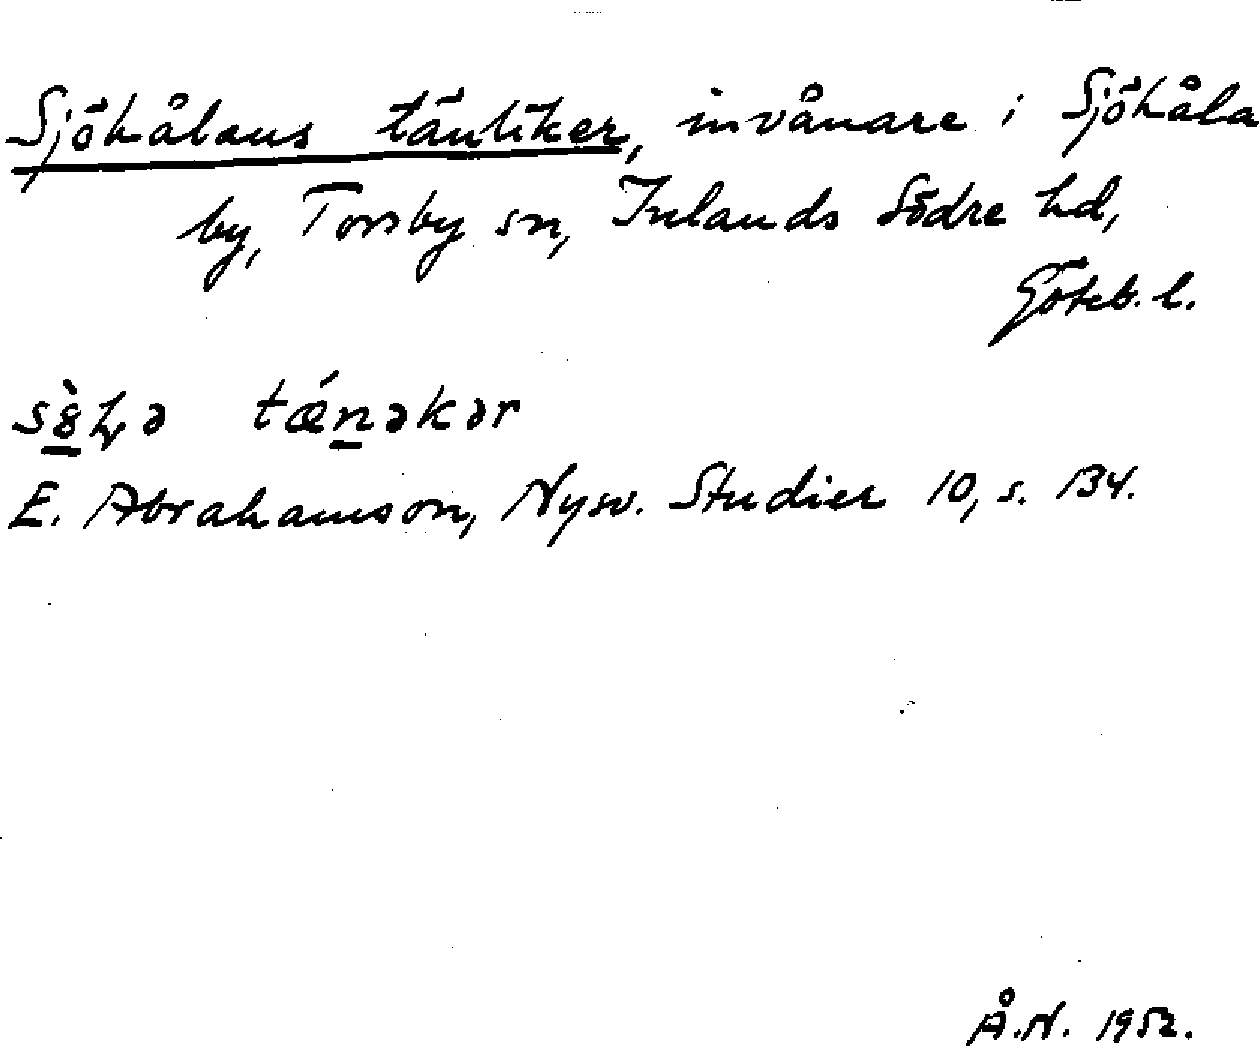 Sjöhålans tänliker, invånare i Sjöhåla
by, Torsby sn, Inlands Södre hd,
Göteb. l.
tǽnəkər
E. Abrahamson, Nysv. Studier 10, s. 134.
Å.N. 1952.